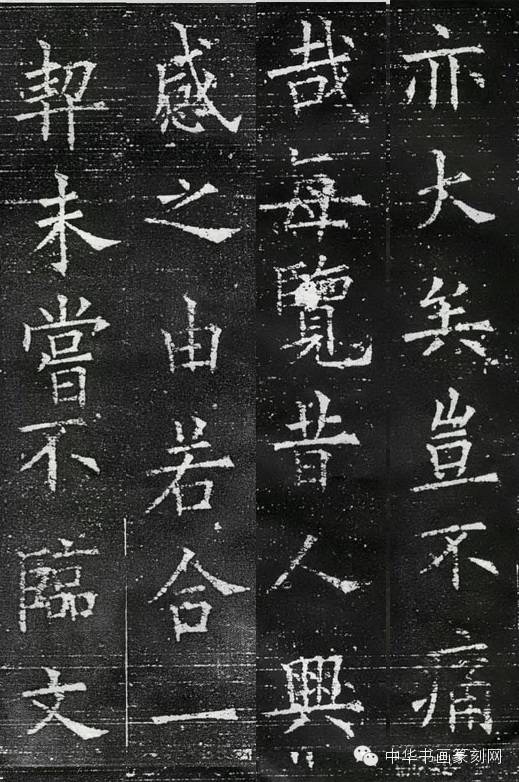 亦大矣豈不痛
哉每覽昔人興
感之由若合一
契未嘗不臨文
中华书画篆刻网